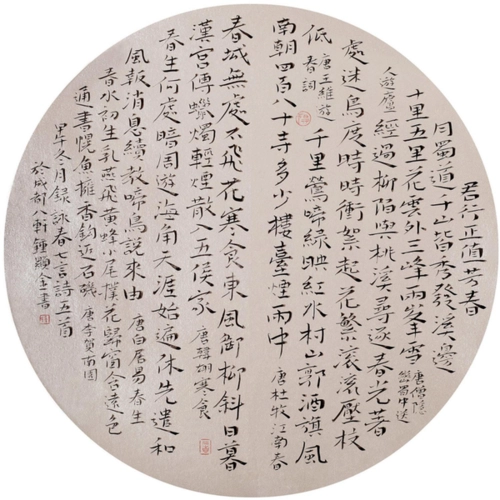 君行正值芳春
月蜀道千山皆秀發溪邊
十里五里花雲外三峰兩峯雪 唐僧隱巒蜀中送
人遊廬 經過柳陌與桃溪尋逐春光著
處迷鳥度時時衝絮起花繁滾滾壓枝
低 唐王維遊春詞 千里鶯啼綠映紅水村山郭酒旗風
南朝四百八十寺多少樓臺煙雨中 唐杜牧江南春
春城無處不飛花寒食東風御柳斜日暮
漢宮傳蠟燭輕煙散入五侯家 唐韓翃寒食
春生何處暗周遊海角天涯始遍休先遣和
風報消息續教啼鳥說來由 唐白居易春生
春水初生乳燕飛黃蜂小尾撲花歸窗含遠色
通書幌魚擁香鈎近石磯 唐李賀南園
甲午冬月錄詠春七言詩五首
於成都八軒鍾顯金書